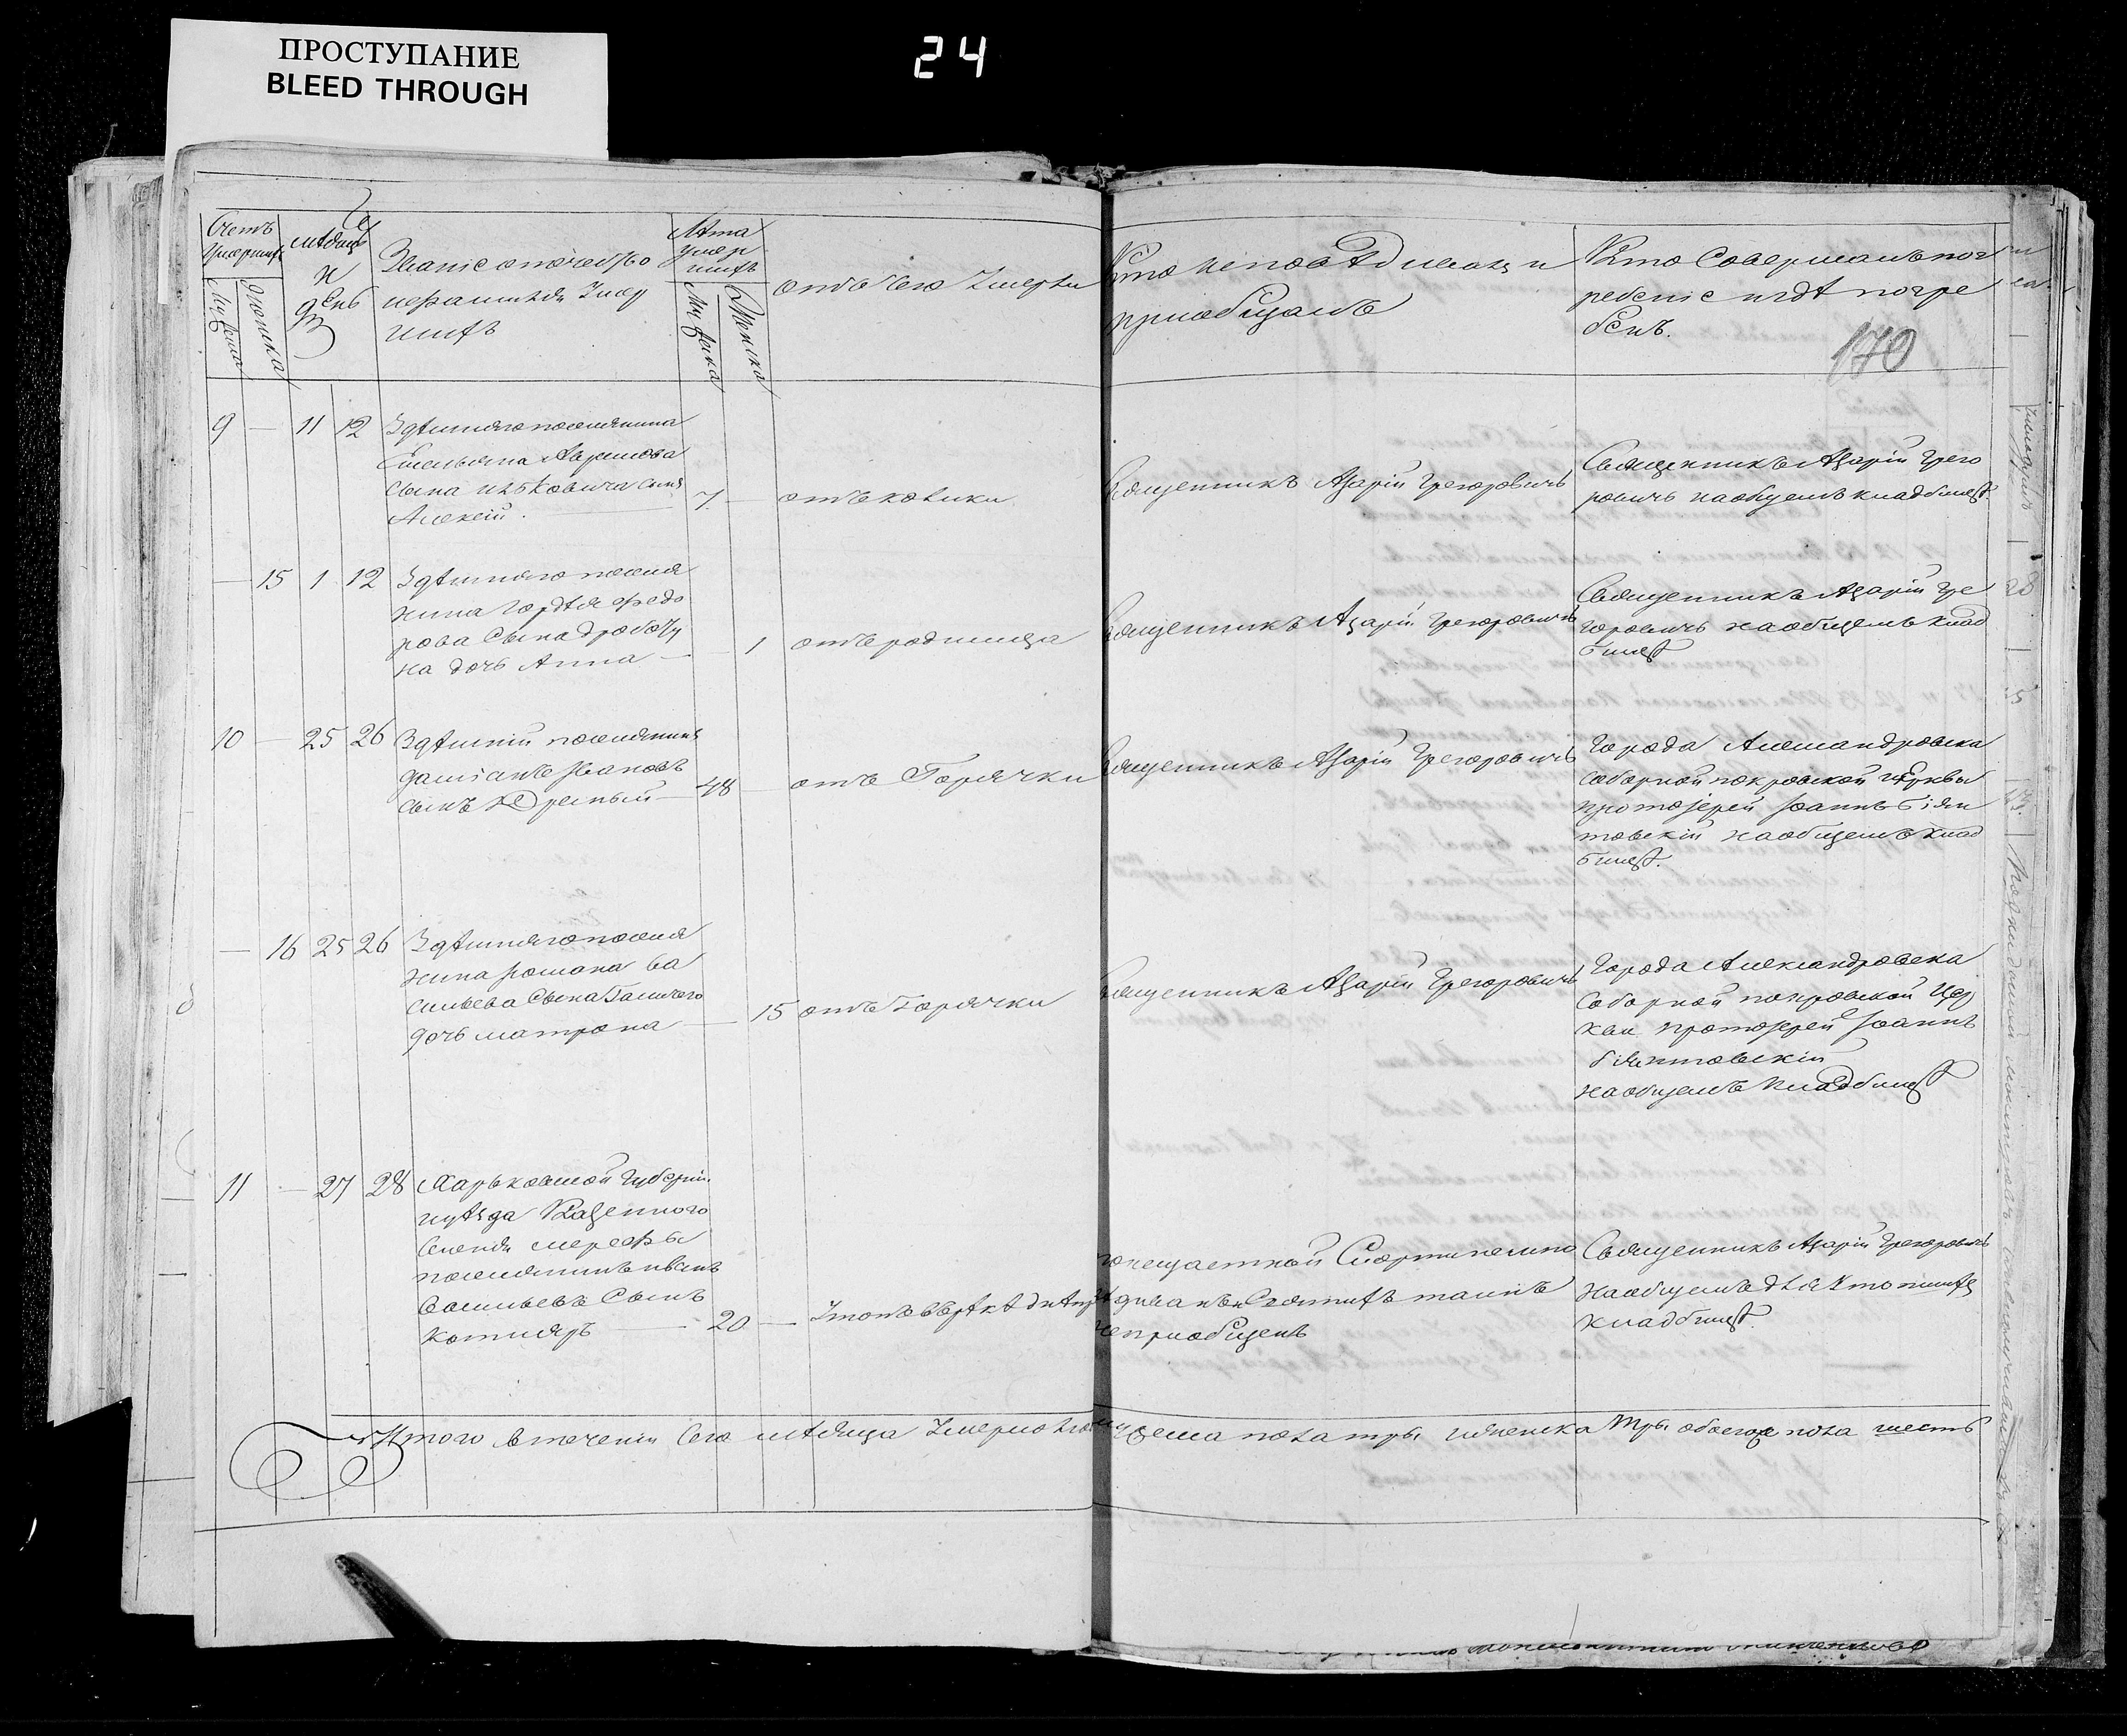 ПРОСТУПАНИЕ
BLEED THROUGH
24
Счетъ
умершихъ
Мужска
Женска
мѣсяцъ
и
день
Званіе отечество
и фамилія умер
шихъ
Лѣта
умер
шихъ
Мужска
Женска
отъ чего умерли
Кто исповѣдывалъ и
приобщалъ
Кто Совершалъ пог
ребеніе и гдѣ погре
бенъ.
170
9 — 11 12
Здѣшняго поселянина
Емельяна
сына сынъ
Алексій.
7
отъ колики
Священникъ Азарій Грегоровичъ
Священникъ Азарій Грего
ровичъ на общемъ кладбищѣ.
— 15 1 12
Здѣшняго поселя
нина Гордѣя Федо
рова Сына
дочь Анна —
— 1
отъ родимца
Священникъ Азарій Грегоровичъ
Священникъ Азарій Гре
горовичъ на общемъ клад
бищѣ
10 — 25 26
Здѣшній поселянинъ
Даміанъ Ивановъ
сынъ
48
отъ Горячки
Священникъ Азарій Грегоровичъ
Города Александровска
Соборной покровской церквы
протоіерей Іоаннъ
на общемъ клад
бищѣ.
— 16 25 26
Здѣшняго поселя
нина Романа Ва
сильева Сына
дочь матрона —
— 15
отъ Горячки
Священникъ Азарій Грегоровичъ
Города Александровска
Соборной покровской Цер
квы протоіерей Іоаннъ
на общемъ кладбищѣ
11 — 27 28
Харьковской губерніи
и уѣзда Казенного
Селенія мерефы
поселянинъ иванъ
Васильевъ Сынъ
Котляръ —
20 —
Утопъ въ рѣкѣ днѣпрѣ
по нещастной Смерти не испо
вѣдиванъ и Святихъ таинъ
не приобщенъ
Священникъ Азарій Грегоровичъ
на общемъ для
кладбищѣ.
Итого втеченіи Сего мѣсяца Умерло мужеска пола три женска три обоего пола шесть